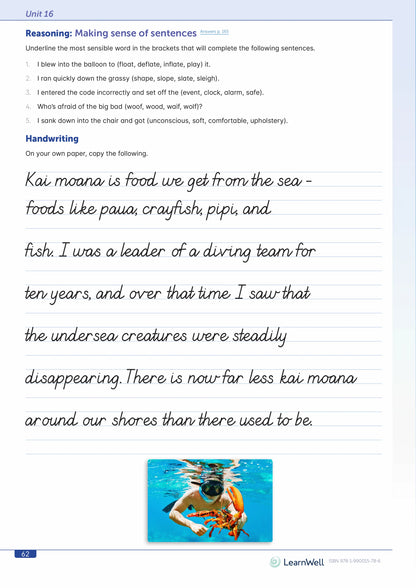 Unit 16
Reasoning: Making sense of sentences Answers p. 
Underline the most sensible word in the brackets that will complete the following sentences.
1. I blew into the balloon to (float, deflate, inflate, play) it.
2. I ran quickly down the grassy (shape, slope, slate, sleigh).
3. I entered the code incorrectly and set off the (event, clock, alarm, safe).
4. Who's afraid of the big bad (woof, wood, waif, wolf)?
5. I sank down into the chair and got (unconscious, soft, comfortable, upholstery).
Handwriting
On your own paper, copy the following.
Kai moana is food we get from the sea –
foods like paua, crayfish, pipi, and
fish. I was a leader of a diving team for
ten years, and over that time I saw that
the undersea creatures were steadily
disappearing. There is now far less kai moana
around our shores than there used to be.
62
LearnWell